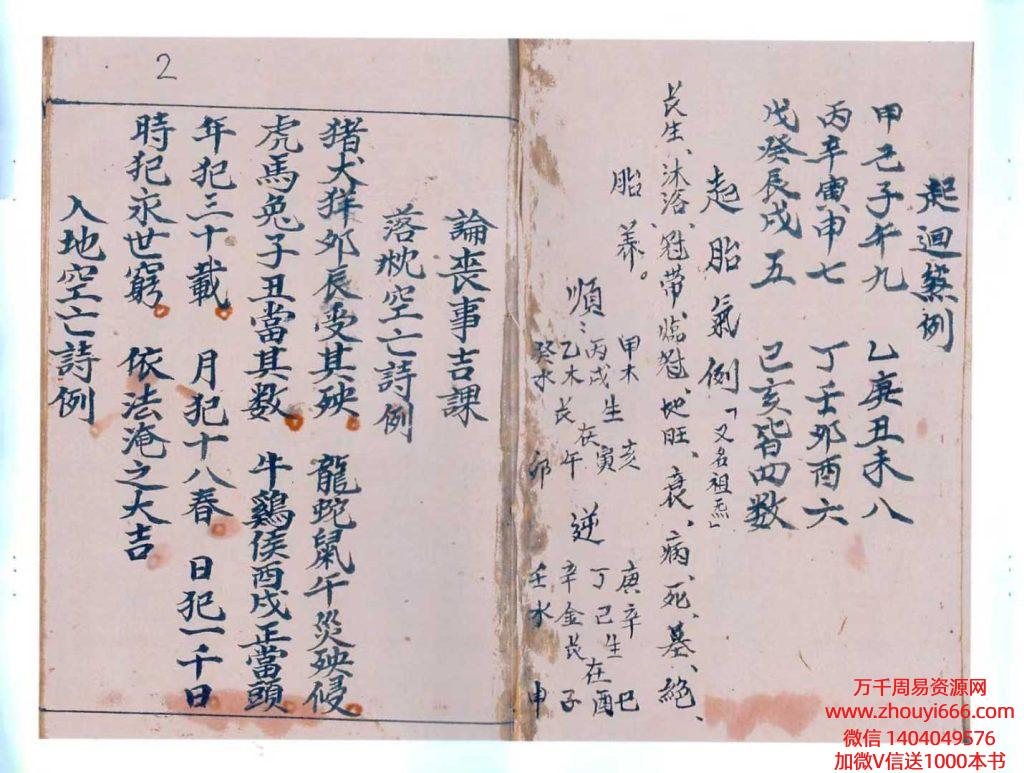 起迴煞例
甲己子午九　乙庚丑未八
丙辛寅申七　丁壬卯酉六
戊癸辰戌五　己亥皆四数
起胎氣例「又名祖炁」
長生、沐浴、冠带、临冠、地旺、衰、病、死、墓、絕、
胎、养。
順：
甲木　亥
丙戌生在寅
乙木長午
癸水　卯
逆
庚辛　巳
丁己生在酉
辛金長子
壬水　申
2
論喪事吉課
落枕空亡詩例
猪犬羊卯辰受其殃　龍蛇鼠午災殃侵
虎馬兔子丑當其数　牛鷄侯酉戌正當頭
年犯三十載　月犯十八春　日犯一千日
時犯永世窮　依法淹之大吉
入地空亡詩例
万千周易资源网
www.zhouyi666.com
微信 1404049576
加微V信送1000本书